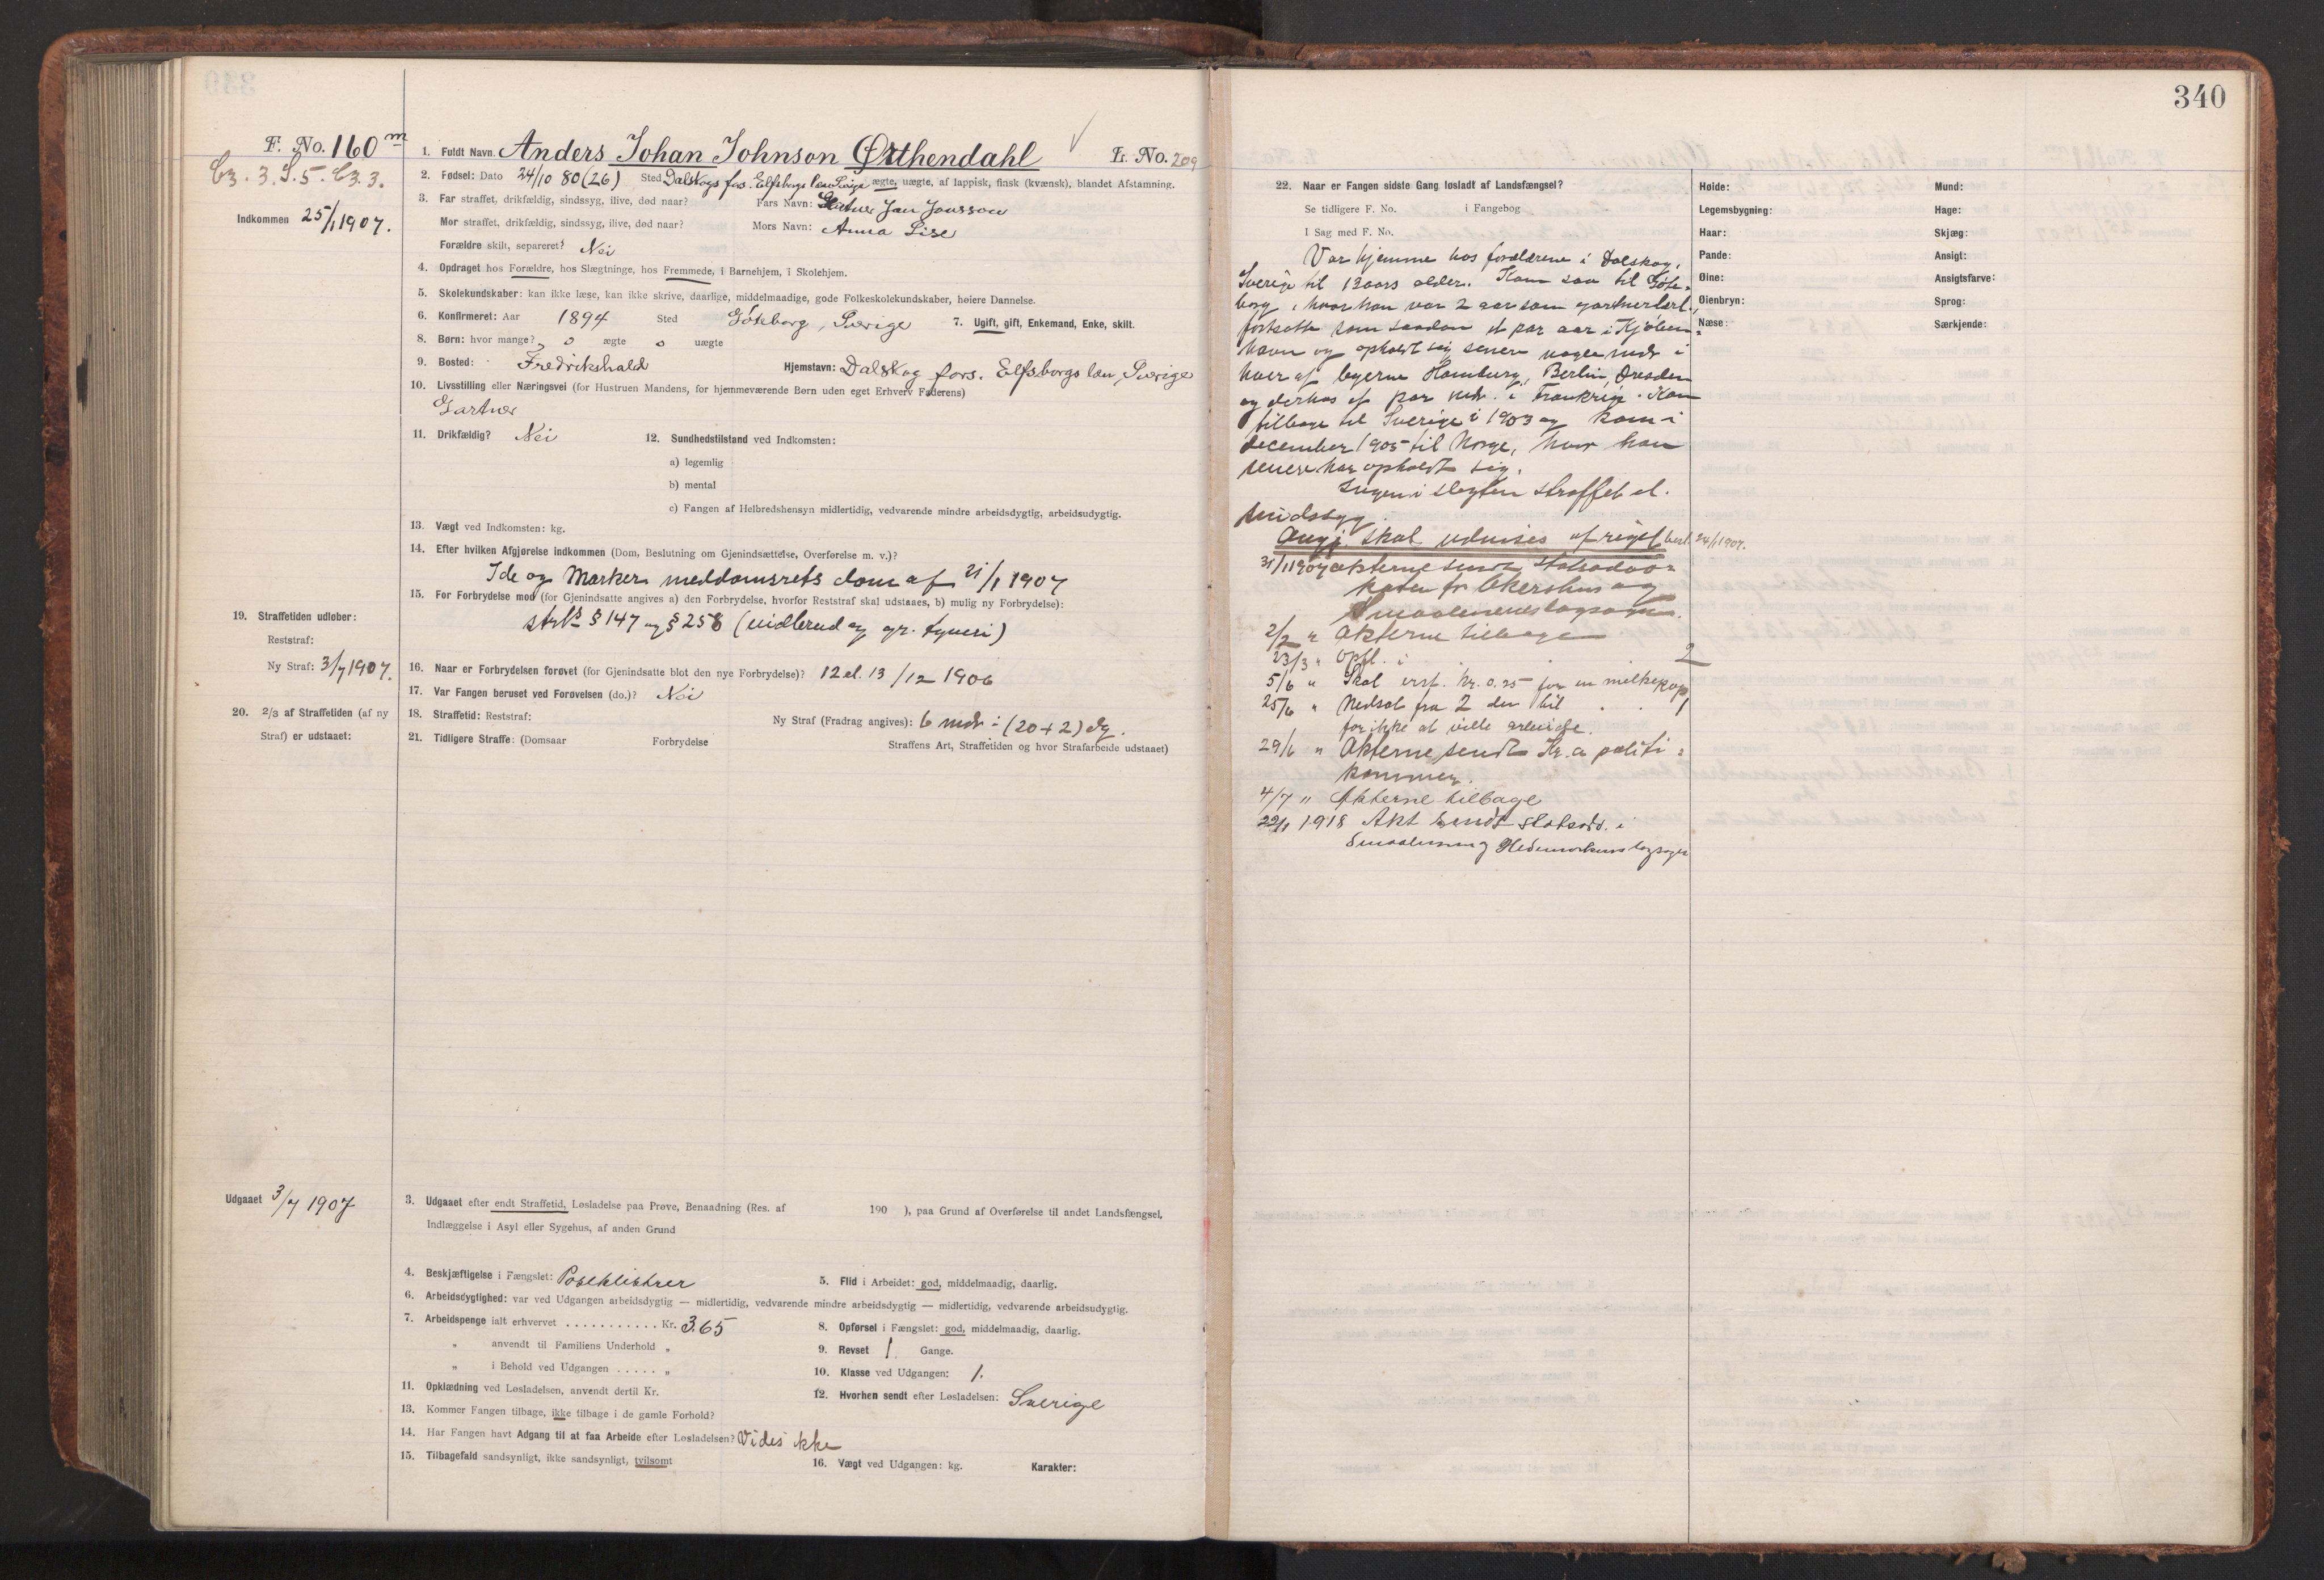 340
F. No. 160 m
C3. 3. S. 5. C3. 3.
Indkommen 25/1 1907.
1. Fuldt Navn. Anders Johan Johnson Ötthendahl L. No. 209
2. Fødsel: Dato 24/10 80 (26) Sted Dalskogs fors. Elfsborgs län Sverige ægte, uægte, af lappisk, finsk (kvænsk), blandet Afstamning.
3. Far straffet, drikfældig, sindssyg, ilive, død naar? Fars Navn: Jan Jonsson
Mor straffet, drikfældig, sindssyg, ilive, død naar? Mors Navn: Anna Lise
Forældre skilt, separeret? Nei
4. Opdraget hos Forældre, hos Slægtninge, hos Fremmede, i Barnehjem, i Skolehjem.
5. Skolekundskaber: kan ikke læse, kan ikke skrive, daarlige, middelmaadige, gode Folkeskolekundskaber, høiere Dannelse.
6. Konfirmeret: Aar 1894 Sted Göteborg, Sverige 7. Ugift, gift, Enkemand, Enke, skilt.
8. Børn: hvor mange? 0 ægte 0 uægte
9. Bosted: Fredrikshald Hjemstavn: Dalskog fors. Elfsborgs len, Sverige
10. Livsstilling eller Næringsvei (for Hustruen Mandens, for hjemmeværende Børn uden eget Erhverv Faderens)
Gartner
11. Drikfældig? Nei 12. Sundhedstilstand ved Indkomsten:
a) legemlig
b) mental
c) Fangen af Helbredshensyn midlertidig, vedvarende mindre arbeidsdygtig, arbeidsudygtig.
13. Vægt ved Indkomsten: kg.
14. Efter hvilken Afgjørelse indkommen (Dom, Beslutning om Gjenindsættelse, Overførelse m. v.)?
Ide og Markers meddomsrets dom af 21/1 1907
15. For Forbrydelse mod (for Gjenindsatte angives a) den Forbrydelse, hvorfor Reststraf skal udstaaes, b) mulig ny Forbrydelse):
strl's § 147 og § 258 (indbrud og gr. tyveri)
19. Straffetiden udløber:
Reststraf:
Ny Straf: 3/7 1907.
16. Naar er Forbrydelsen forøvet (for Gjenindsatte blot den nye Forbrydelse)? 12 el. 13/12 1906
17. Var Fangen beruset ved Forøvelsen (do.)? Nei
20. 2/3 af Straffetiden (af ny
Straf) er udstaaet:
18. Straffetid: Reststraf: Ny Straf (Fradrag angives): 6 mdr ÷ (20 + 2) dg.
21. Tidligere Straffe: (Domsaar Forbrydelse Straffens Art, Straffetiden og hvor Strafarbeide udstaaet)
Udgaaet 3/7 1907
3. Udgaaet efter endt Straffetid, Løsladelse paa Prøve, Benaadning (Res. af 190 ), paa Grund af Overførelse til andet Landsfængsel,
Indlæggelse i Asyl eller Sygehus, af anden Grund
4. Beskjæftigelse i Fængslet: Poseklistrer 5. Flid i Arbeidet: god, middelmaadig, daarlig.
6. Arbeidsdygtighed: var ved Udgangen arbeidsdygtig — midlertidig, vedvarende mindre arbeidsdygtig — midlertidig, vedvarende arbeidsudygtig.
7. Arbeidspenge ialt erhvervet . . . . . . . . . . . Kr. 3.65 8. Opførsel i Fængslet: god, middelmaadig, daarlig.
„ anvendt til Familiens Underhold „ 9. Revset 1. Gange.
„ i Behold ved Udgangen . . . . . „ 10. Klasse ved Udgangen: 1.
11. Opklædning ved Løsladelsen, anvendt dertil Kr. 12. Hvorhen sendt efter Løsladelsen: Sverige
13. Kommer Fangen tilbage, ikke tilbage i de gamle Forhold?
14. Har Fangen havt Adgang til at faa Arbeide efter Løsladelsen? Vides ikke
15. Tilbagefald sandsynligt, ikke sandsynligt, tvilsomt 16. Vægt ved Udgangen: kg. Karakter:
22. Naar er Fangen sidste Gang løsladt af Landsfængsel?
Se tidligere F. No. i Fangebog
I Sag med F. No.
Var hjemme hos forældrene i Dalskog,
Sverige til 12 aars alder. Kom saa til Göte-
borg, hvor han var 2 aar som gartnerlærl.,
fortsatte som saadan et par aar i Kjøben-
havn og opholdt sig senere nogle mdr i
hver af byerne Hamburg, Berlin, Dresden
og derhos et par mdr. i Frankrige. Kom
tilbage til Sverige i 1903 og kom i
december 1905 til Norge, hvor han
senere har opholdt sig.
Ingen i slegten straffet el.
sindssyg.
Angj. skal udvises af riget besl. 24/1 1907.
31/1 1907 akterne sendt statsadvo-
katen for Akershus og
Smaalenenes lagsogn.
2/2 " Akterne tilbage
23/3 " Opfl. i . . . 2
5/6 " Skal erst. kr. 0.25 for en melkekop
25/6 " Nedsat fra 2 den til . . 1
for ikke at ville arbeide.
29/6 " Akterne sendt Kr.a politi-
kammer.
4/7 " Akterne tilbage
22/1 1918 Akt sendt statsadv. i
Smaalenene og Hedemarkens lagsogn
Høide: Mund:
Legemsbygning: Hage:
Haar: Skjæg:
Pande: Ansigt:
Øine: Ansigtsfarve:
Øienbryn: Sprog:
Næse: Særkjende: